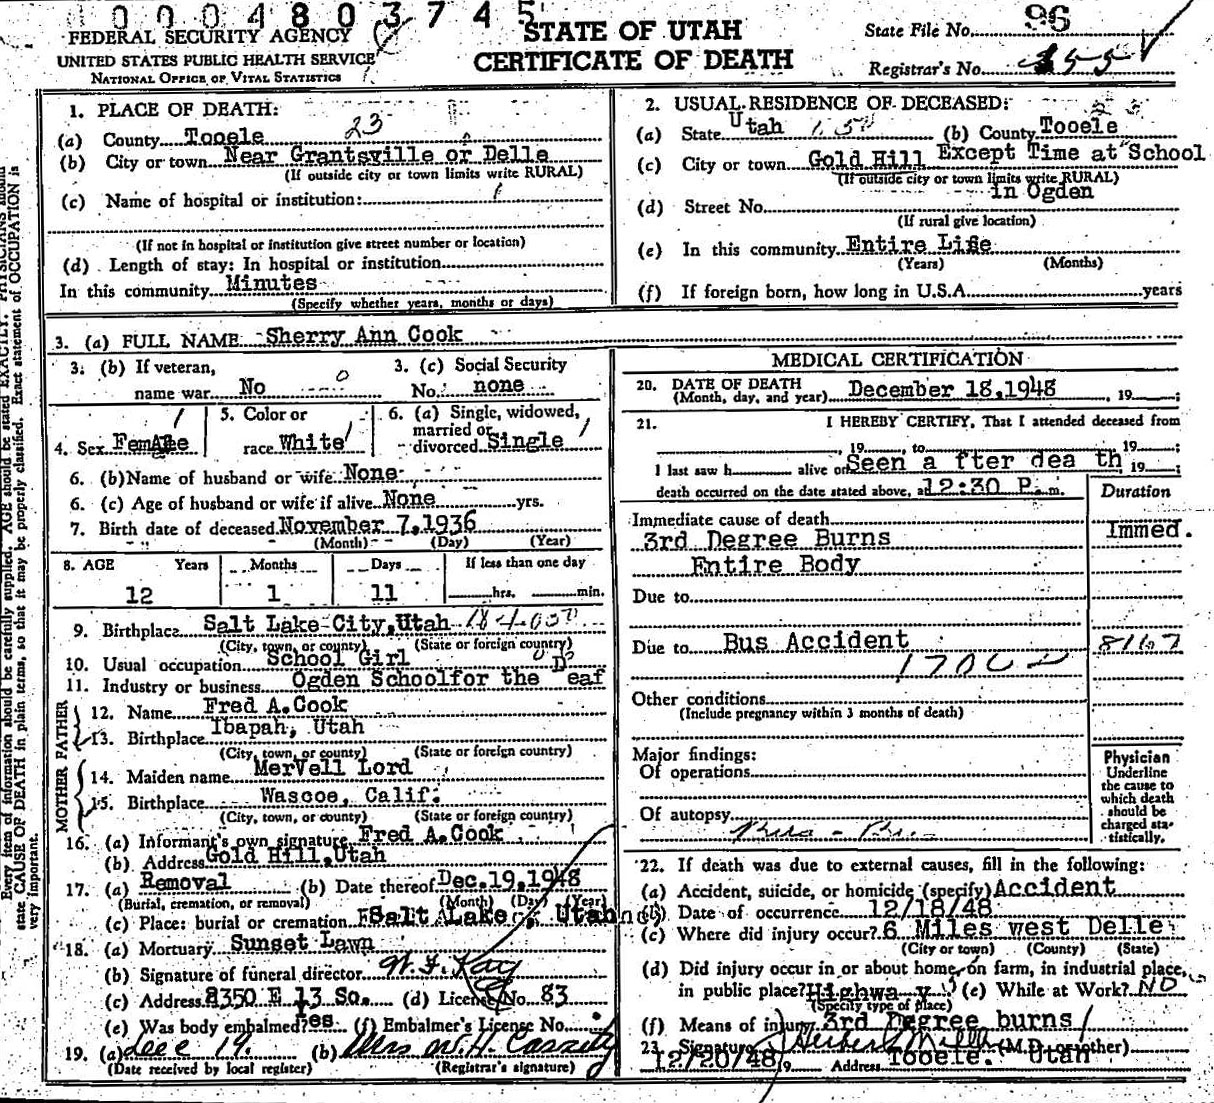 0004803745
FEDERAL SECURITY AGENCY
UNITED STATES PUBLIC HEALTH SERVICE
NATIONAL OFFICE OF VITAL STATISTICS
STATE OF UTAH
CERTIFICATE OF DEATH
State File No. 96
Registrar's No. 155
Every item of information should be carefully supplied. AGE should be stated EXACTLY. PHYSICIANS should
state CAUSE OF DEATH in plain terms, so that it may be properly classified. Exact statement of OCCUPATION is
very important.
1. PLACE OF DEATH:
(a) County Tooele 23
(b) City or town Near Grantsville or Delle
(If outside city or town limits write RURAL)
(c) Name of hospital or institution:
(If not in hospital or institution give street number or location)
(d) Length of stay: In hospital or institution
In this community Minutes
(Specify whether years, months or days)
2. USUAL RESIDENCE OF DECEASED:
(a) State Utah (b) County Tooele
(c) City or town Gold Hill Except Time at School
(If outside city or town limits write RURAL)
in Ogden
(d) Street No.
(If rural give location)
(e) In this community Entire Life
(Years) (Months)
(f) If foreign born, how long in U.S.A. years
3. (a) FULL NAME Sherry Ann Cook
3. (b) If veteran,
name war No 0
3. (c) Social Security
No. none
4. Sex Female
5. Color or
race White
6. (a) Single, widowed,
married or
divorced Single
6. (b) Name of husband or wife None
6. (c) Age of husband or wife if alive None yrs.
7. Birth date of deceased November 7, 1936
(Month) (Day) (Year)
8. AGE Years Months Days If less than one day
12 1 11 hrs. min.
9. Birthplace Salt Lake City, Utah
(City, town, or county) (State or foreign country)
10. Usual occupation School Girl
11. Industry or business Ogden School for the Deaf
FATHER
12. Name Fred A. Cook
13. Birthplace Ibapah, Utah
(City, town, or county) (State or foreign country)
MOTHER
14. Maiden name MerVell Lord
15. Birthplace Wascoe, Calif.
(City, town, or county) (State or foreign country)
16. (a) Informant's own signature Fred A. Cook
(b) Address Gold Hill, Utah
17. (a) Removal (b) Date thereof Dec. 19, 1948
(Burial, cremation, or removal) (Month) (Day) (Year)
(c) Place: burial or cremation Salt Lake Utah
18. (a) Mortuary Sunset Lawn
(b) Signature of funeral director
(c) Address 2350 E 13 So. (d) License No. 83
(e) Was body embalmed? Yes (f) Embalmer's License No.
19. (a) Dec 19. (b) Mrs W. H. Cassity
(Date received by local register) (Registrar's signature)
MEDICAL CERTIFICATION
20. DATE OF DEATH
(Month, day, and year) December 18, 1948, 19 ;
21. I HEREBY CERTIFY, That I attended deceased from
, 19 , to , 19 ;
I last saw h alive on Seen a fter dea th, 19 ;
death occurred on the date stated above, at 12:30 P. m.
Duration
Immediate cause of death Immed.
3rd Degree Burns
Entire Body
Due to
Due to Bus Accident
Other conditions
(Include pregnancy within 3 months of death)
Major findings:
Of operations
Of autopsy
Physician
Underline
the cause to
which death
should be
charged sta-
tistically.
22. If death was due to external causes, fill in the following:
(a) Accident, suicide, or homicide (specify) Accident
(b) Date of occurrence 12/18/48
(c) Where did injury occur? 6 Miles west Delle
(City or town) (County) (State)
(d) Did injury occur in or about home, on farm, in industrial place,
in public place? Highwa y (e) While at Work? NO
(Specify type of place)
(f) Means of injury 3rd Degree burns
23. Signature (M.D. or other)
12/20/48 19 Address Tooele. Utah